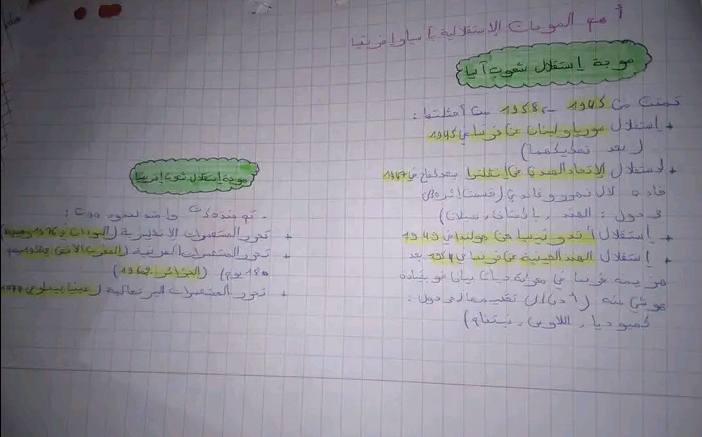 أهم الموجات الإستقلالية بآسيا وإفريقيا
موجة إستقلال شعوب آسيا
تمت من 1945 إلى 1958 من أمثلتها:
+ إستقلال سوريا ولبنان عن فرنسا في 1945
(بعد
+ إستقلال الإتحاد الهندي عن إنجلترا بعد كفاح في 1947
قاده لال نهرو وغاندي (قسمت إلى
3 دول: الهند، باكستان، سيلان)
+ إستقلال أندونيسيا عن هولندا في 1949
+ إستقلال الهند الصينية عن فرنسا في 1954 بعد
هزيمة فرنسا في معركة ديان بيان فو بقيادة
هوشي منه (أدى إلى تقسيمها إلى 3 دول:
كمبوديا، اللاوس، فيتنام)
موجة إستقلال شعوب إفريقيا
+ تحرر المستعمرات الإنجليزية (السودان
+ تحرر المستعمرات الفرنسية (المغرب الأقصى
(الجزائر 1962)
+ تحرر المستعمرات البرتغالية (غينيا بيساو